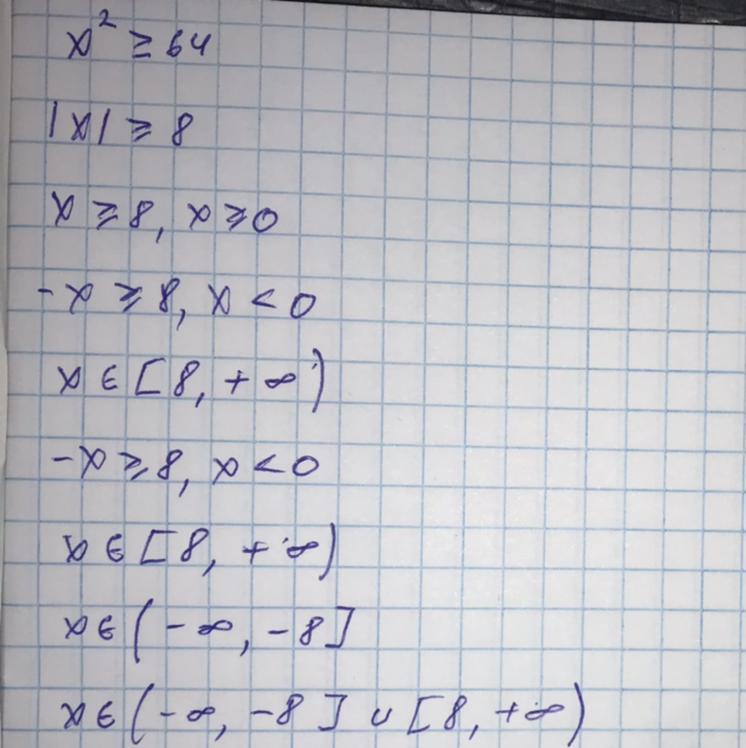 x² ≥ 64
|x| ≥ 8
x ≥ 8, x ≥ 0
-x ≥ 8, x < 0
x ∈ [8, +∞)
-x ≥ 8, x < 0
x ∈ [8, +∞)
x ∈ (-∞, -8]
x ∈ (-∞, -8] ∪ [8, +∞)